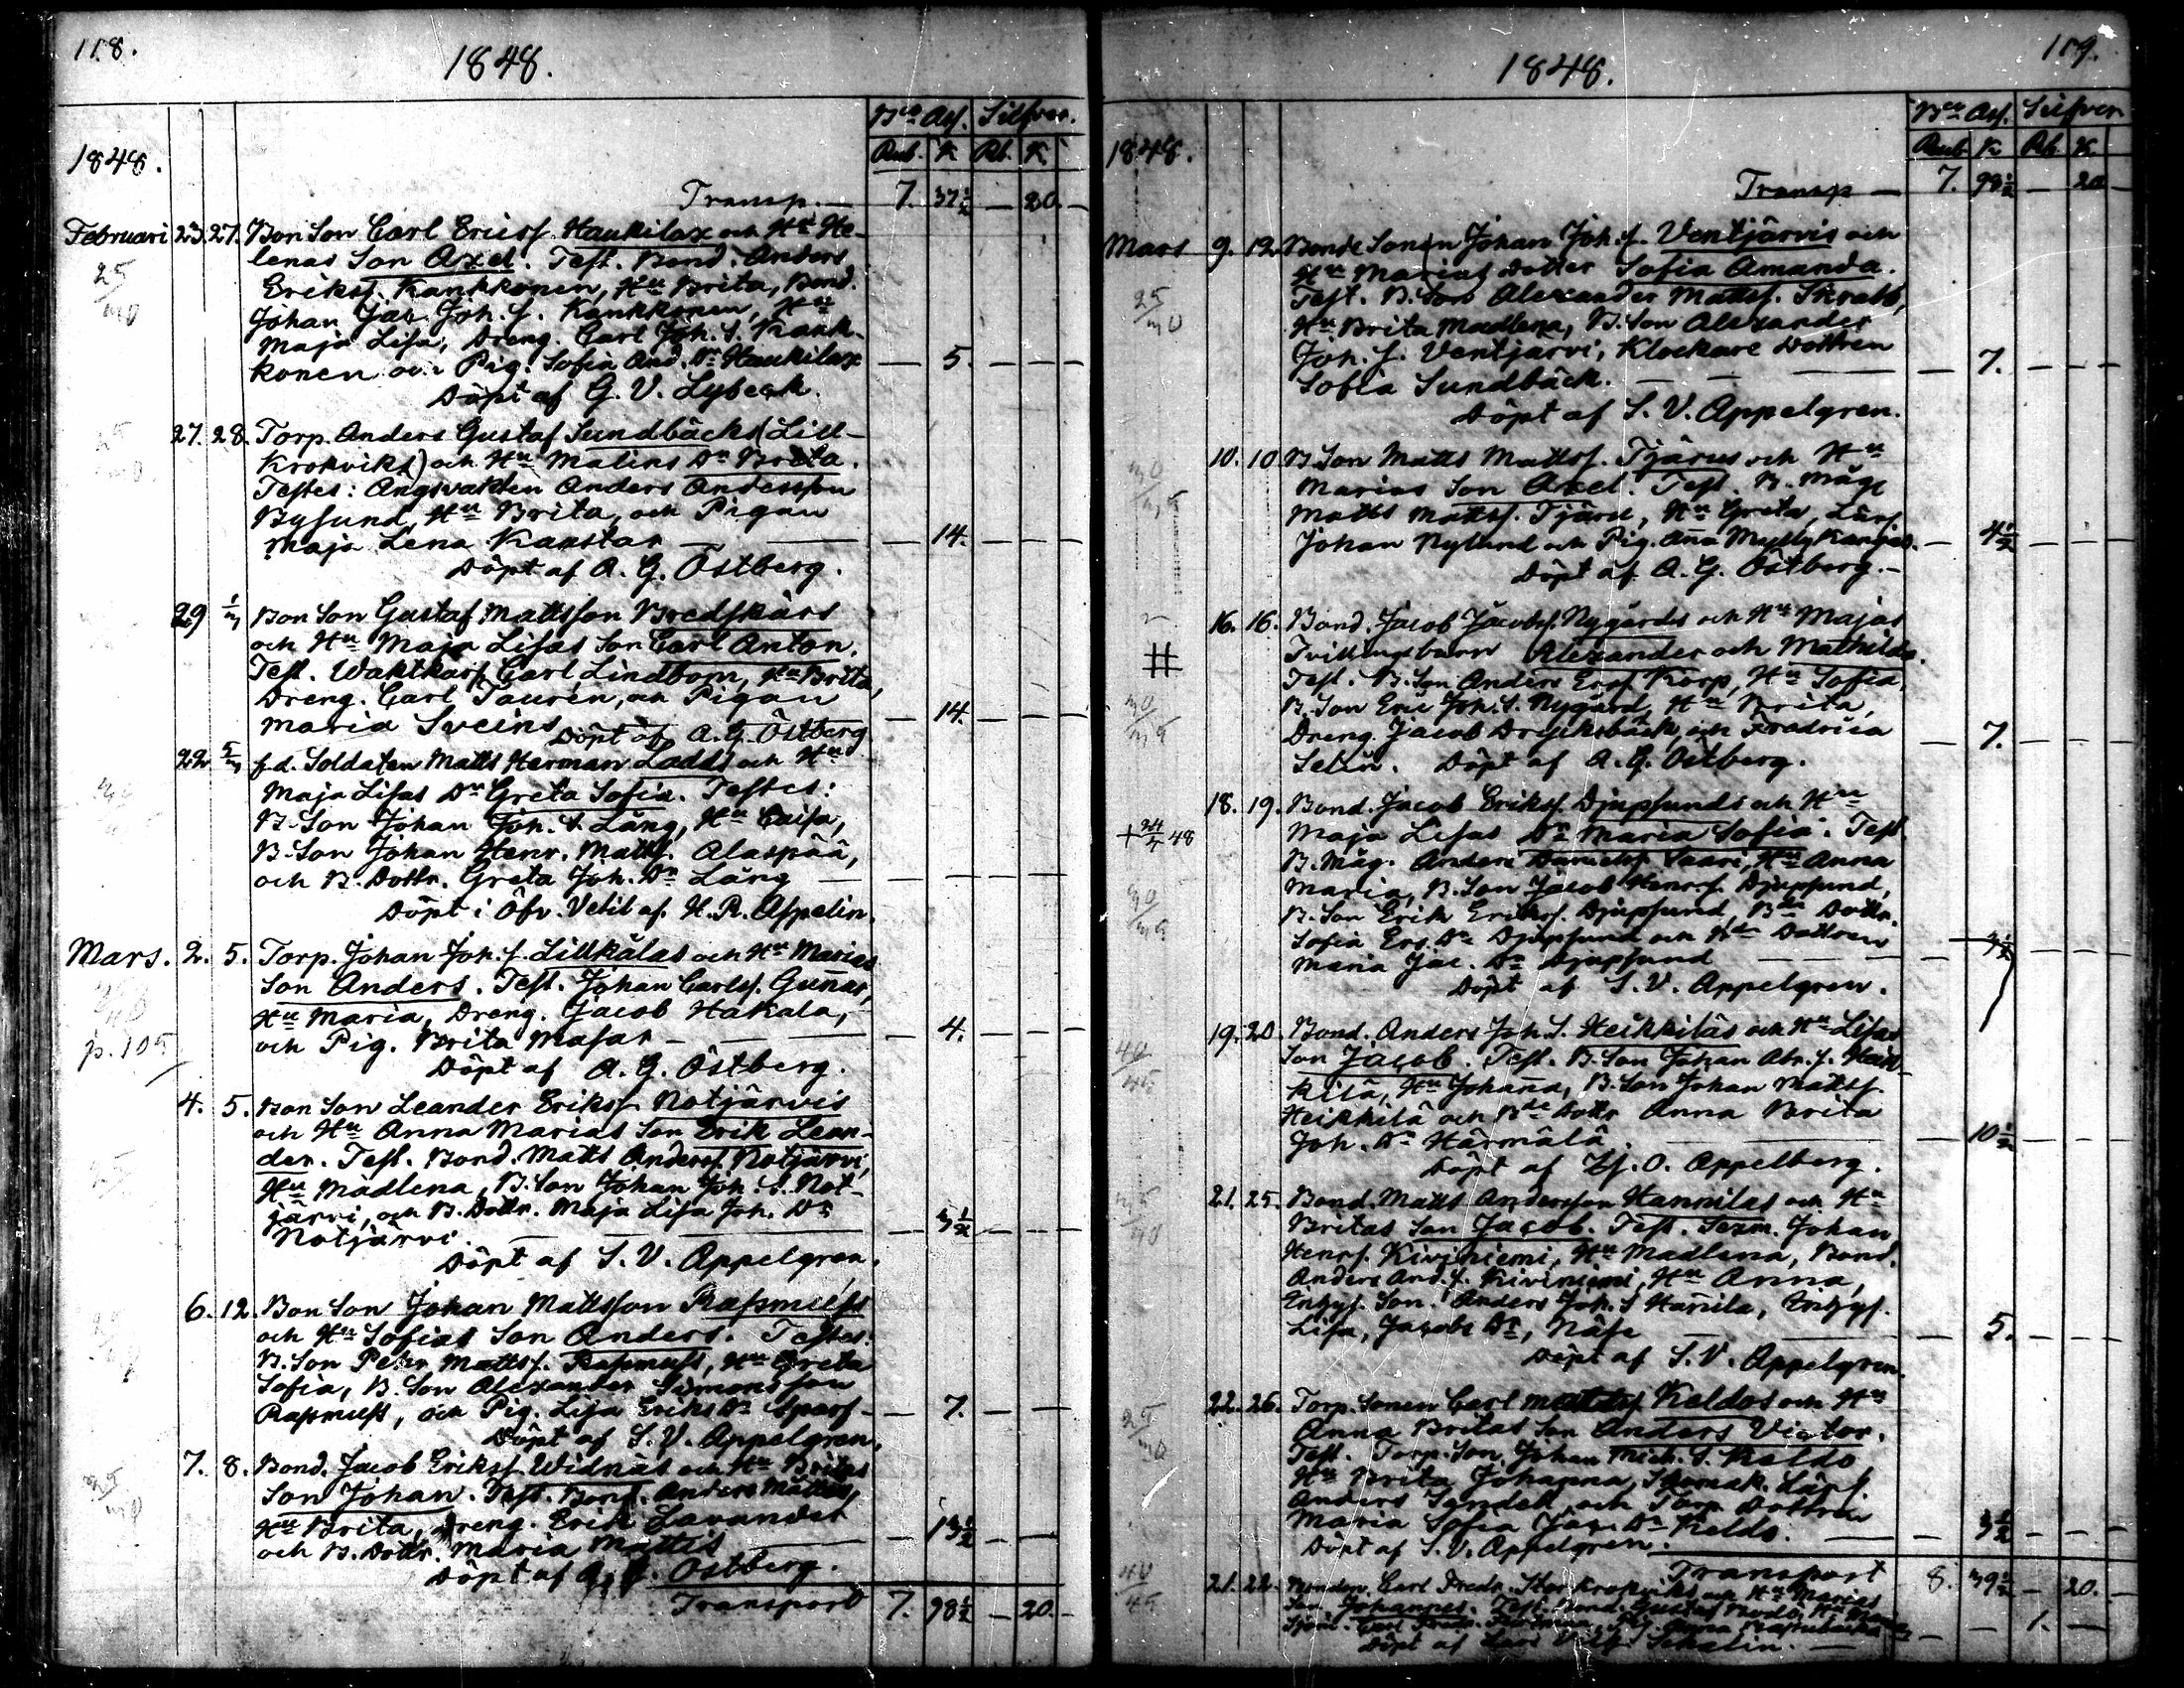 118.
1848.
Bco Ass. Silfver.
Rub. K Rb. K.
1848.
Transp. — 7. 37½ — 20. —
Februari 23. 27. Bon Son Carl Ericss. Haukilax och Hu He-
lenas Son Axel. Test. Bond. Anders
25/30 Erikss. Kankkonen, Hu Brita, Bond.
Johan Jac. Joh. s. Kankkonen, Hu
Maja Lisa, Dreng. Carl Joh. S. Kank-
konen och Pig. Sofia And. Dr Haukilax — 5. — — —
Döpt af G. V. Lybeck.
27. 28. Torp. Anders Gustaf Sundbäcks (Lill-
Krokviks) och Hu Malins Dr Brita.
Testes: Ängsvakten Anders Andersson
Bysund, Hu Brita, och Pigan
Maja Lena Kaustar — — — 14. — — —
Döpt af A. G. Östberg.
29 1/3 Bon Son Gustaf Mattsson Bredskärs
och Hu Maja Lisas Son Carl Anton.
Test. Waktkarl Carl Lindbom, Hu Brita,
Dreng. Carl Taurén, och Pigan
Maria Sveins — 14. — — —
Döpt af A. G. Östberg
22 5/3 f.d. Soldaten Matts Herman Ladds och Hu
Maja Lisas Dr Greta Sofia. Testes:
B. Son Johan Joh. S. Lång, Hu Caisa,
B. Son Johan Henr. Matts. Alaspää,
och B. Dottr. Greta Joh. Dr Lång — — — — — —
Döpt i Öfv. Vetil af H. R. Aspelin.
Mars. 2. 5. Torp. Johan Joh. s. Lillkålas och Hu Marias
Son Anders. Test. Johan Carlss. Gunnar,
Hu Maria, Dreng. Jacob Hakala,
p. 105 och Pig. Brita Masar — — — 4. — — —
Döpt af A. G. Östberg.
4. 5. Bon Son Leander Erikss. Notjärvis
och Hu Anna Marias Son Erik Lean-
der. Test. Bond. Matts Anderss. Notjärvi,
Hu Madlena, B. Son Johan Joh. S. Not-
järvi, och B. Dottr. Maja Lisa Joh. Dr
Notjärvi. — — — 3½ — — —
Döpt af S. V. Appelgren.
6. 12. Bon Son Johan Mattsson Rasmuss
och Hu Sofias Son Anders. Testes:
B. Son Pehr Mattss. Rasmuss, Hu Greta
Sofia, B. Son Alexander Simonsson
Rasmuss, och Pig. Lisa Eriks Dr Sparf — 7. — — —
Döpt af S. V. Appelgren.
7. 8. Bond. Jacob Erikss. Widnäs och Hu Britas
Son Johan. Test. Bond. Anders Mattas,
Hu Brita, Dreng. Erik Lavander
och B. Dottr. Maria Mattis — 13½ — —
Döpt af A. G. Östberg.
Transport 7. 98½ — 20. —
1848.
119.
Bco Ass. Silfver
Rub. K Rb. K
1848.
Transp — 7. 98½ — 20 —
Mars 9. 12. Bonde Sonen Johan Joh. s. Ventjärvis och
Hu Marias Dotter Sofia Amanda.
25/30 Test. B. Son Alexander Mattss. Skrabb,
Hu Brita Madlena, B. Son Alexander
Joh. s. Ventjärvi, Klockare Dottren
Sofia Sundbäck. — — — 7. — — —
Döpt af S. V. Appelgren.
10. 10 B Son Matts Mattss. Tjärus och Hu
30/35 Marias Son Axel. Test. B. Måg
Matts Mattss. Tjäru, Hu Greta, Lärl.
Johan Nylund och Pig. Anna Myllykangas. — 4½ — — —
Döpt af A. G. Östberg. —
16. 16. Bond. Jacob Jacobss. Nygårds och Hu Majas
# Tvillingsbarn Alexander och Mathilda.
Test. B. Son Anders Erss. Korp, Hu Sofia,
30/35 B. Son Eric Joh. S. Nygård, Hu Brita,
Dreng. Jacob Drycksbäck, och Fredrica
Selin. Döpt af A. G. Östberg. — 7. — — —
18. 19. Bond. Jacob Erikss. Djupsunds och Hu
+ 24/4 48 Maja Lisas Dr Maria Sofia. Test
B. Måg. Anders Danielss. Saari, Hu Anna
30/35 Maria, B. Son Jacob Henrss. Djupsund,
B. Son Erik Erikss. Djupsund, Bde Dottr.
Sofia Ers. Dr Djupsund och Bde Dottren
Maria Jac. Dr Djupsund — — — 3½ — — —
Döpt af S. V. Appelgren.
19. 20. Bond. Anders Joh. S. Heikkiläs och Hu Lisas
40/45 Son Jacob. Test. B. Son Johan Abr. s. Heik-
kilä, Hu Johana, B. Son Johan Mattss.
Heikkilä och Bde Dottr Anna Brita
Joh. Dr Härmälä. — — 10½ — — —
Döpt af O. Appelberg.
21. 25. Bond. Matts Andersson Hannilas och Hu
35/40 Britas Son Jacob. Test. Sexm. Johan
Henrs. Kiviniemi, Hu Madlena, Bond.
Anders And. s. Kiviniemi, Hu Anna,
Inhys. Son. Anders Joh. S Hannila, Inhys.
Lisa, Jacobs Dr, Näse — — — 5. — — —
Döpt af S. V. Appelgren.
22. 26. Torp. Sonen Carl Mattss. Keldos och Hu
25/30 Anna Britas Son Anders Victor.
Test. Torp. Son. Johan Mich. S. Keldo
Hu Brita Johanna, Skomak. Lärl.
Anders Sandell, och Torp. Dottren
Maria Sofia Jac. Dr Keldo. — — 3½ — — —
Döpt af S. V. Appelgren.
Transport 8. 39½ — 20. —
21. 22. Bonden Carl Fredr. Storkrokviks och Hu Marias
40/45 Son Johannes. Test. Bond. Gustaf
Carl Fredr. Anna — — 1. —
Döpt af Schalin. —